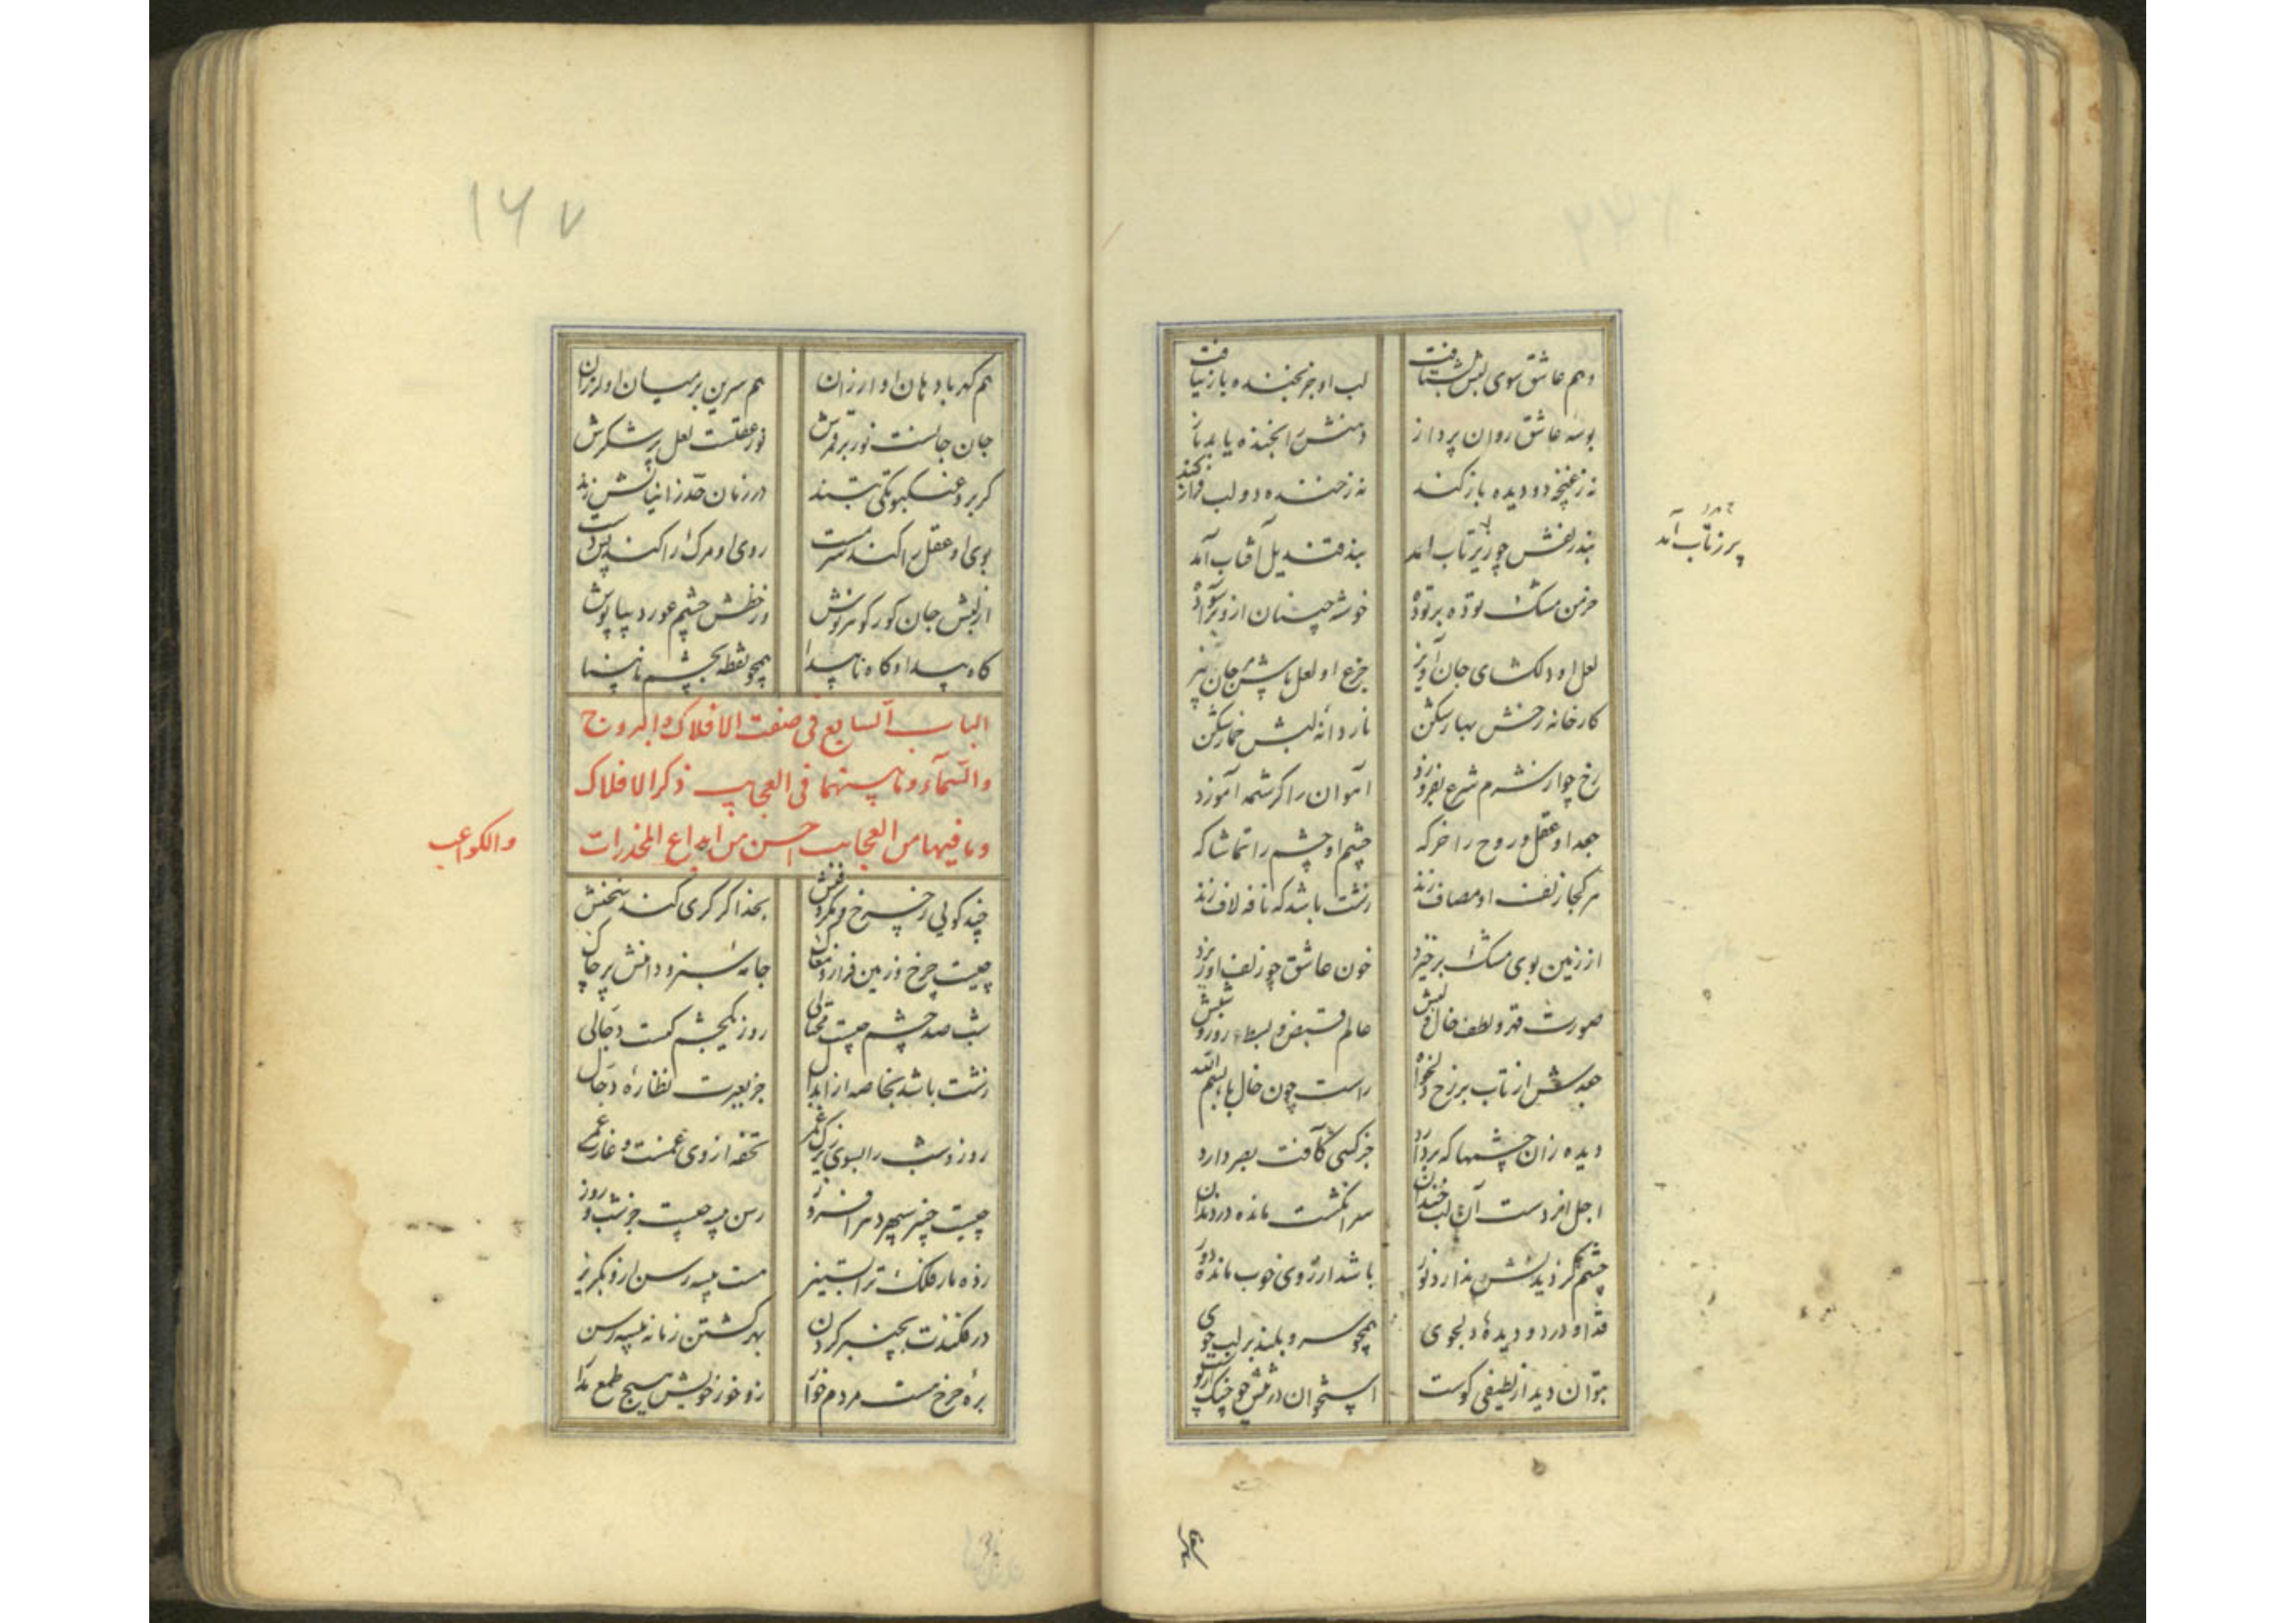 وهم عاشق سوی لبش بشتافت لب او جز بخنده باز نیافت
بوسهٔ عاشق روان پرداز دهنش را بخنده یابد باز
نه ز غنچه دو دیده باز کند نه ز خنده دو لب فراز کند
بند زلفش چو زیر تاب آمد بند قندیل آفتاب آمد
پر ز تاب آمد
خرمن مشک توده بر توده خوشه چینان ازو برآسوده
لعل او دلگشای جان آویز جزع او لعل پاش مرجان بیز
کارخانه رخش بهار شکن ناردانه لبش خمار شکن
رخ چو از شرم شرع بفروزد آهوان را کرشمه آموزد
جعد او عقل و روح را خرگه چشم او چشم را تماشاگه
هر کجا زلف او مصاف زند زشت باشد که نافه لاف زند
از زمین بوی مشک برخیزد خون عاشق چو زلف او ریزد
صورت قهر و لطف خال و لبش عالم قبض و بسط روز و شبش
جعدش از تاب بر رخ دلخواه راست چون خال باء بسم الله
دیده زان چشمها که بردارد جز کسی کآفت بصر دارد
اجل افزدست آن لب خندان سر انگشت مانده در دندان
چشم کز دیدنش ندارد نور باشد از روی خوب مانده دور
قد او در دو دیدهٔ دلجوی همچو سرو بلند بر لب جوی
بتوان دید از لطیفی کوست استخوان در تنش چو خون در پوست
۱۶۷
هم گهر با دهان او ارزان هم سرین بر میان او لرزان
جان جانست نور بر قمرش نور عقلست لعل پر شکرش
گر برد عنکبوتکی بتند در زمان حد زانیانش زند
بوی او عقل را کند سرمست روی او مرگ را کند پس دست
از لبش جان کور کوثر نوش وز خطش چشم عور دیبا پوش
گاه پیدا و گاه ناپیدا همچو نقطه بچشم نابینا
الباب السابع فی صفت الافلاک و البروج
والسمآء و ما بینهما فی العجایب ذکر الافلاک
و ما فیها من العجایب احسن من ابداع المخدرات
والکواعب
چند گویی ز چرخ و مکر و فنش بخدا گر کری کند سخنش
چیست چرخ و زمین فراز و مغاک جامه سبز و دامنش پر چاک
شب صد چشم چیست محتالی روز یکچشم کیست دجالی
زشت باشد بخاصه از ابدال جز بعبرت نظارهٔ دجال
روز و شب را بسوی زیرک و غمر تحفه از وی غمست و غارت عمر
چیست چنبر سپهر دهر افروز رسن پیسه چیست جز شب و روز
زده مار فلک ترا بستیز هست پیسه رسن ازو بگریز
درفکندت بچنبر گردن بهر کشتن زمانه پیسه رسن
برهٔ چرخ هست مردم خوار زو خور خویش هیچ طمع مدار